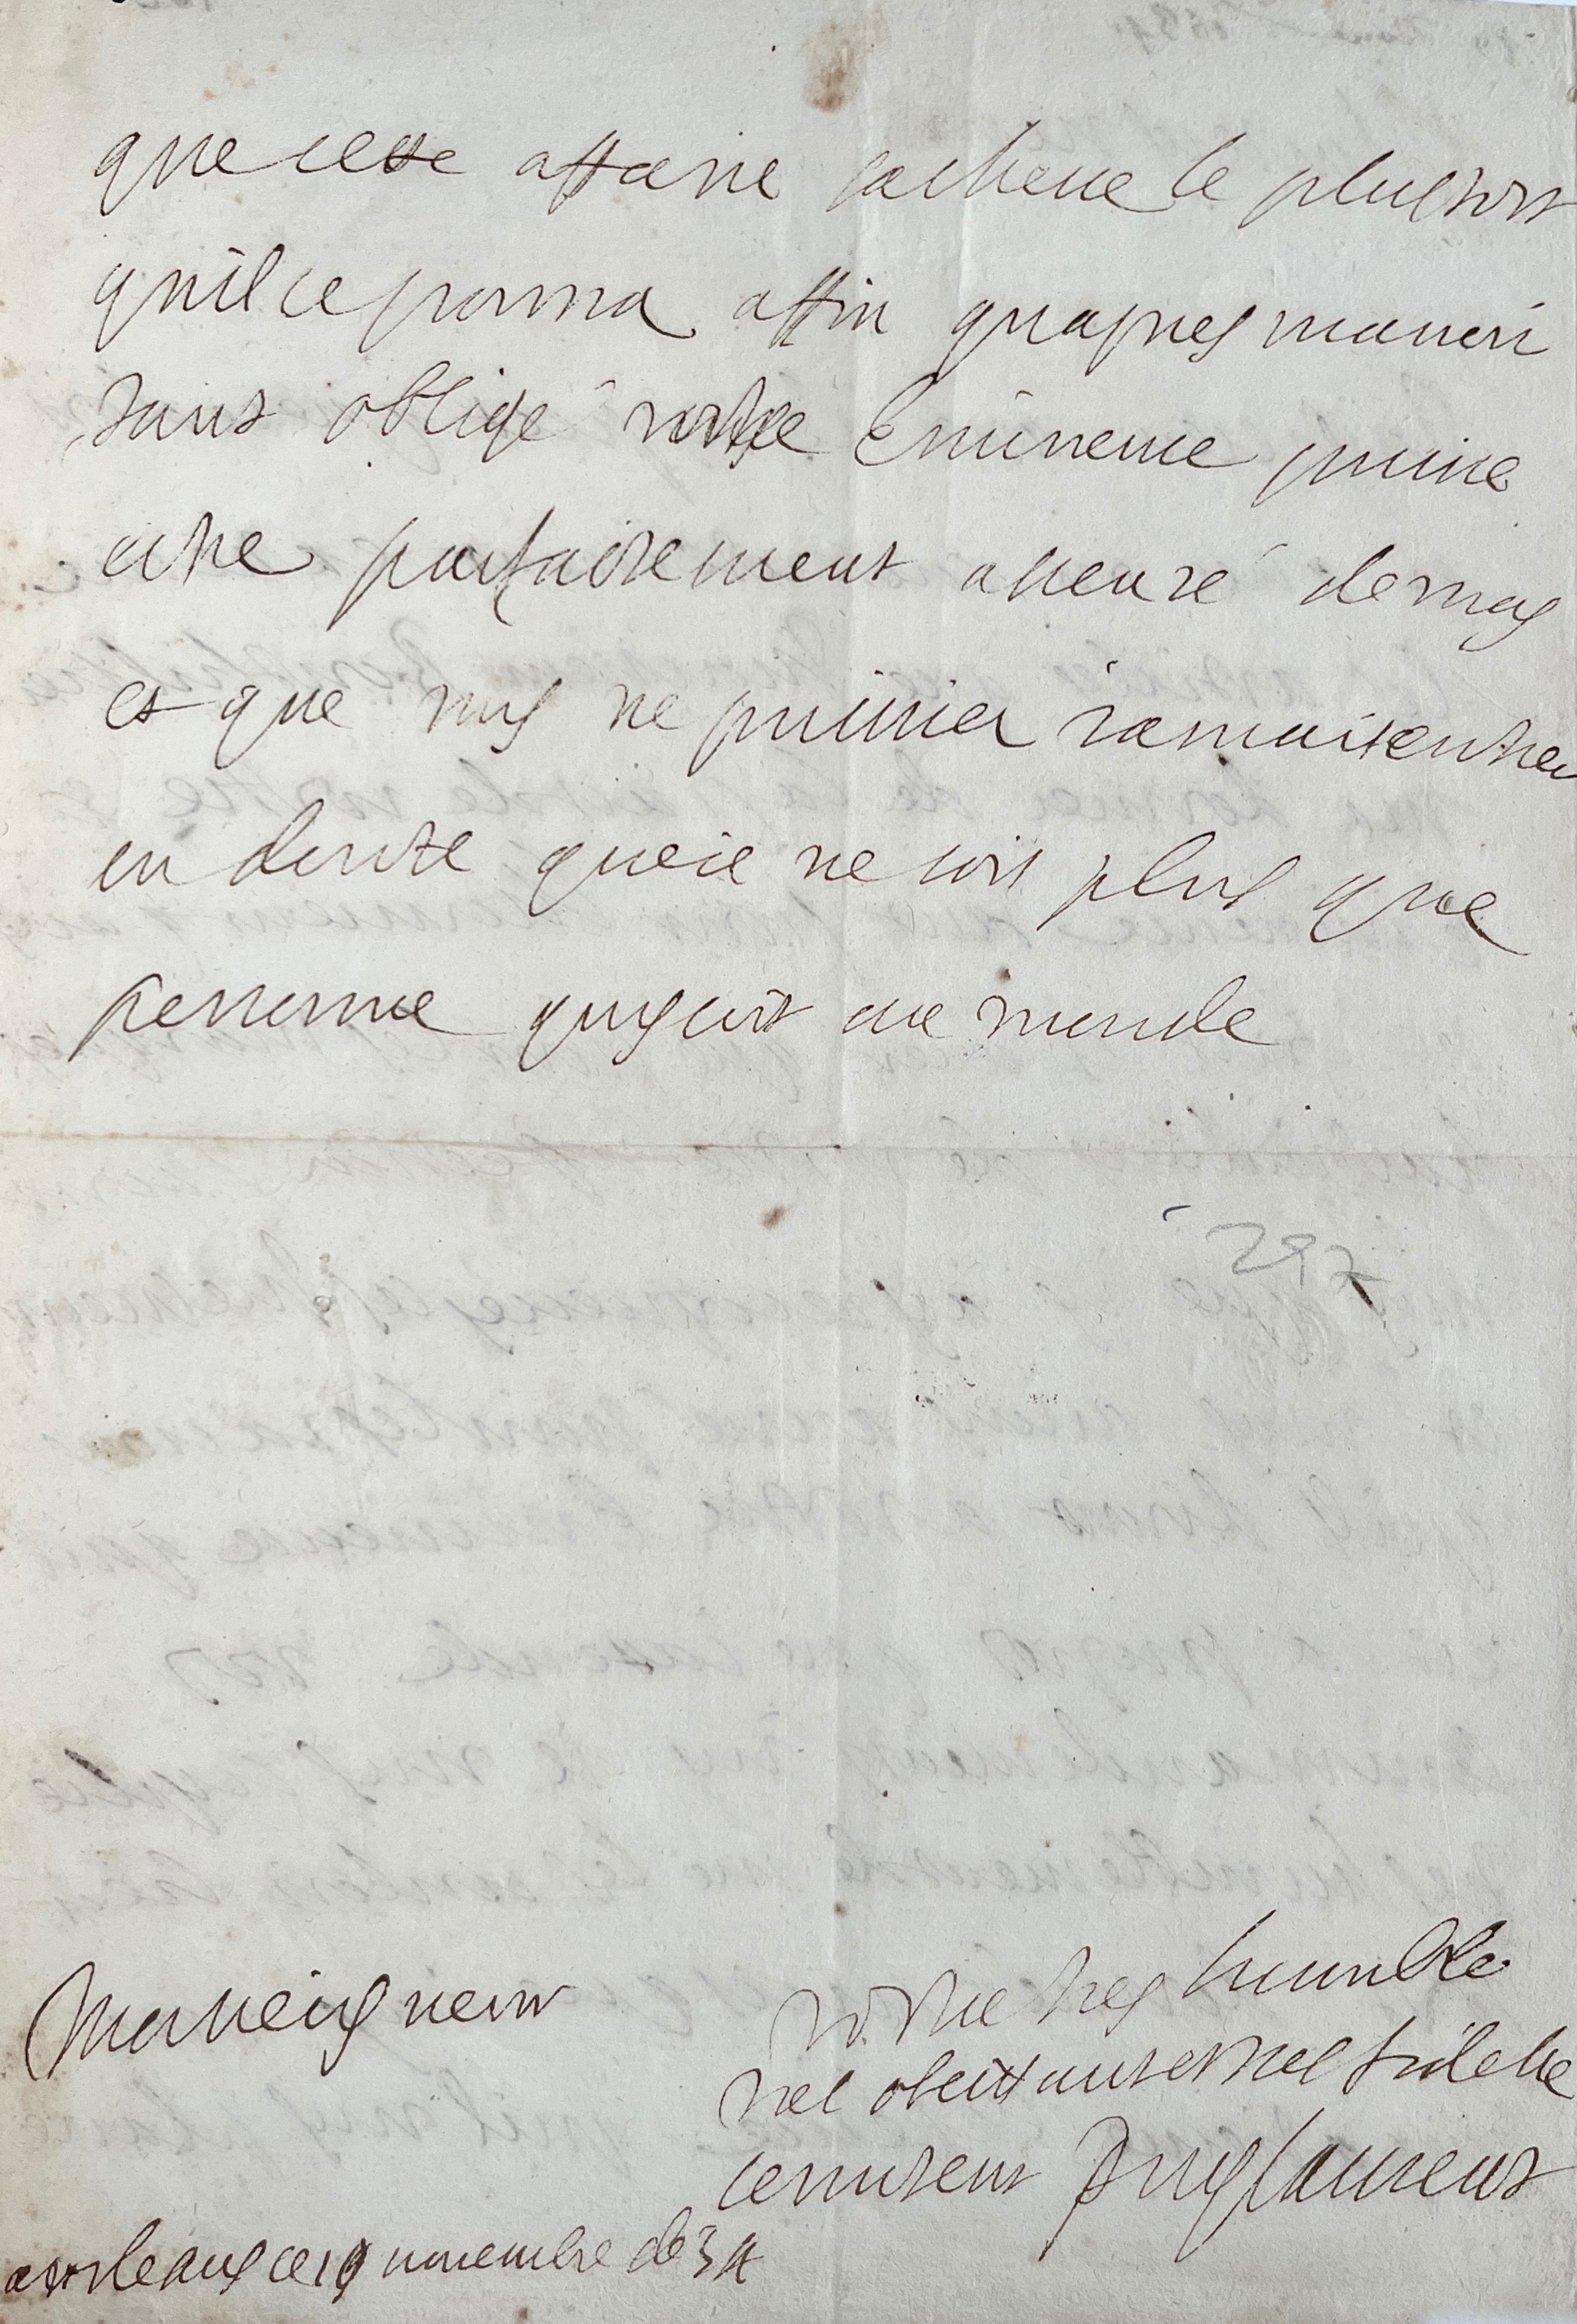 que cette affaire sacheue le plustost
quil ce pourra affin quapres mauoir
tant obligé vostre Eminence puise
estre parfaitement asseuré de moy
et que vous ne puisies iamais entrer
en doute que ie ne sois plus que
personne qui soit au monde
297
Monseigneur
vostre tres humble
tres obeissant et tres fidelle
seruiteur Puylaurens
a orleans ce 19 nouembre 634